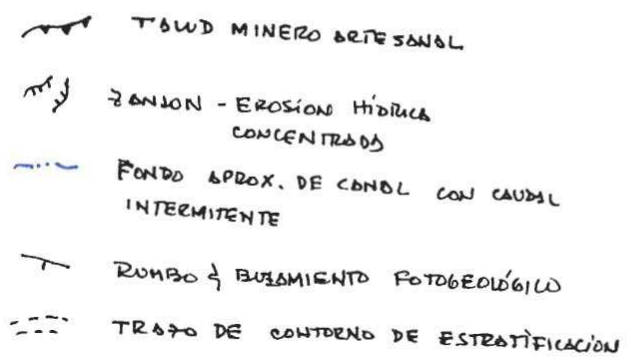 TALUD MINERO ARTESANAL
ZANJON - EROSIÓN HÍDRICA
CONCENTRADA
FONDO APROX. DE CANAL CON CAUDAL
INTERMITENTE
RUMBO & BUZAMIENTO FOTOGEOLÓGICO
TRAZO DE CONTORNO DE ESTRATIFICACIÓN